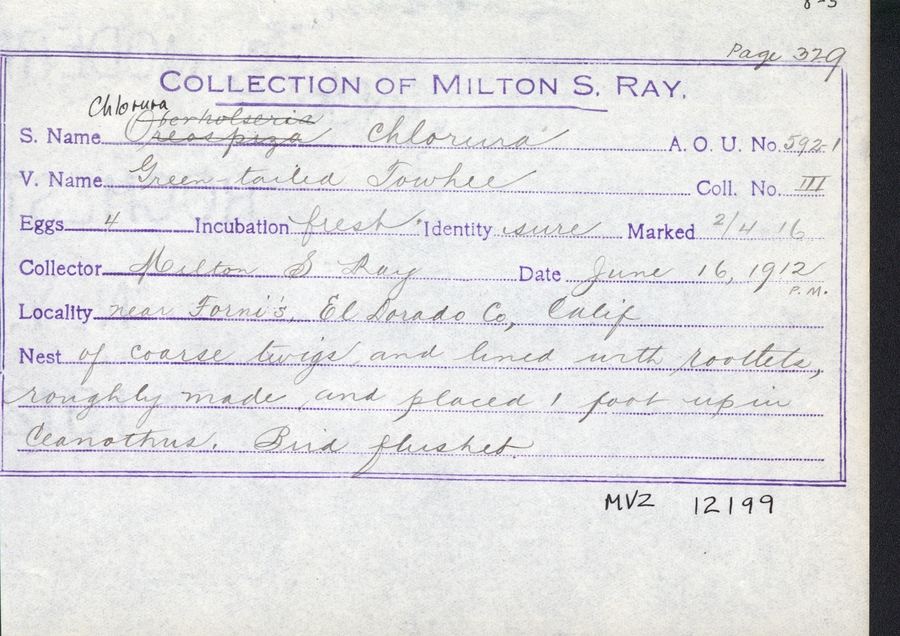 Page 329
COLLECTION OF MILTON S. RAY.
Chlorura
Oberholseria
S. Name Oreospiza Chlorura A. O. U. No. 592-1
V. Name Green-tailed Towhee Coll. No. III
Eggs 4 Incubation fresh Identity sure Marked 2/4 16
Collector Milton S Ray Date June 16, 1912
P.M.
Locality near Forni's, El Dorado Co, Calif
Nest of coarse twigs and lined with rootlets,
roughly made and placed 1 foot up in
Ceanothus. Bird flushed.
MVZ 12199